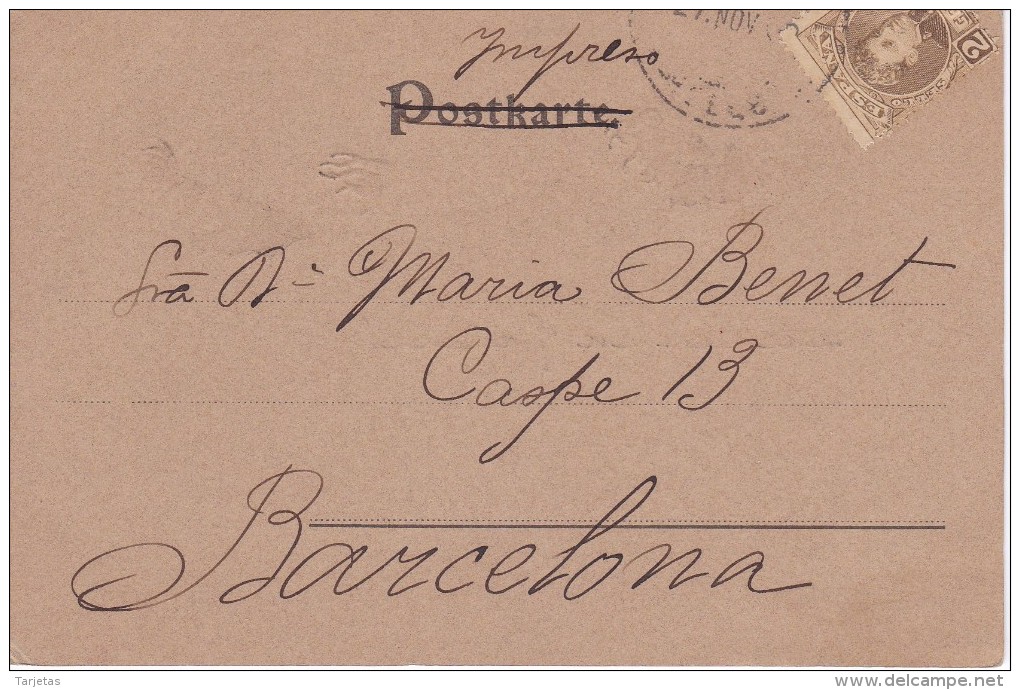 Impreso
27. NOV
Postkarte.
Sra Dª Maria Benet
Caspe 13
Barcelona
Tarjetas
www.delcampe.net